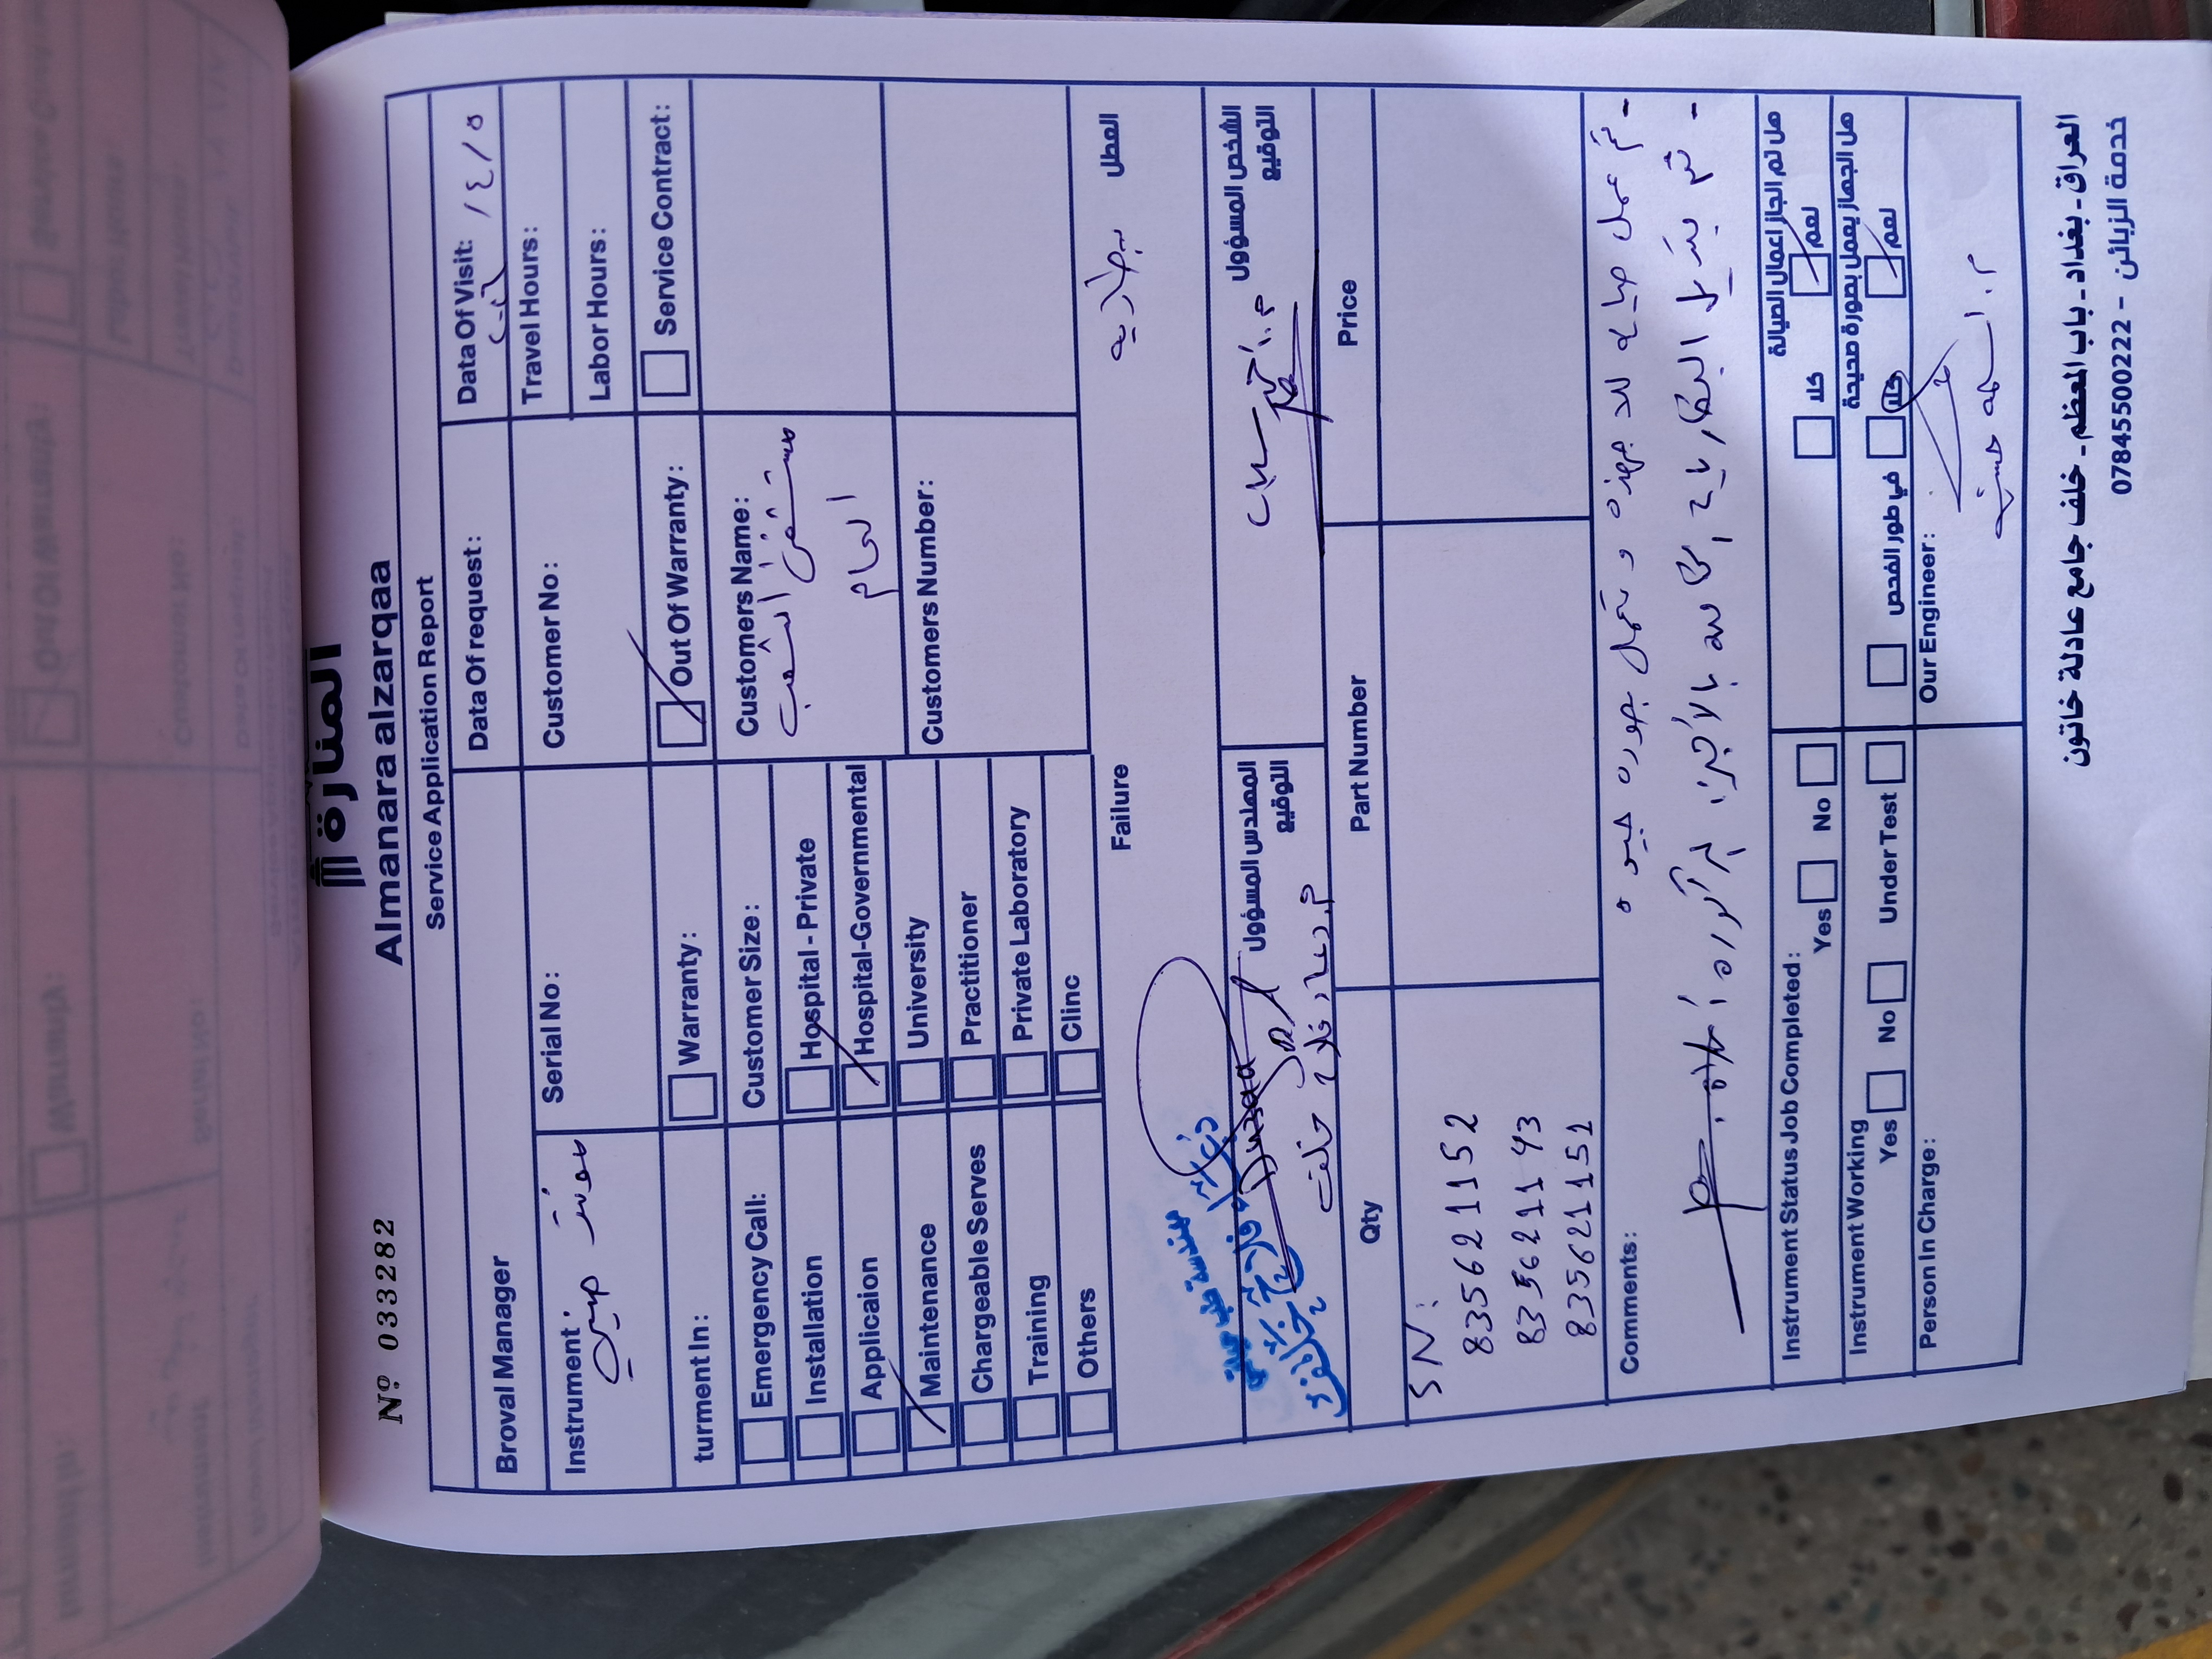 Nº 033282
المنارة
Almanara alzarqaa
Service Application Report
Broval Manager
Data Of request:
Data Of Visit: ٥ / ٤ /
Instrument:
Serial No:
Customer No:
Travel Hours:
Labor Hours:
turment In:
Warranty:
Out Of Warranty:
Service Contract:
Emergency Call:
Installation
Applicaion
Maintenance
Chargeable Serves
Training
Others
Customer Size:
Hospital - Private
Hospital-Governmental
University
Practitioner
Private Laboratory
Clinc
Customers Name:
مستشفى الشعب
العام
Customers Number:
Failure
العطل
بطارية
المهندس المسؤول
التوقيع
الشخص المسؤول
التوقيع
Qty
Part Number
Price
SN:
8356211152
8356211143
8356211151
Comments:
- تم عمل صيانه للاجهزه و تعمل بصوره جيده
- تم تبديل البطاريات
Instrument Status Job Completed:
Yes
No
هل تم انجاز اعمال الصيانة
كلا
نعم
Instrument Working
Yes
No
Under Test
هل الجهاز يعمل بصورة صحيحة
في طور الفحص
كلا
نعم
Person In Charge:
Our Engineer:
العراق - بغداد - باب المعظم - خلف جامع عادلة خاتون
خدمة الزبائن - 07845500222